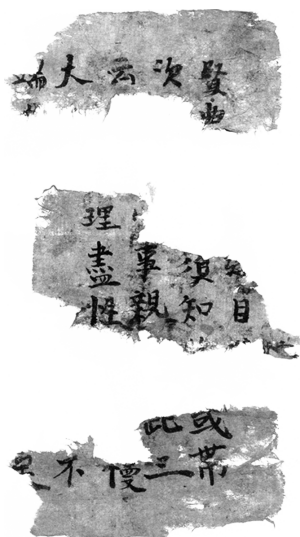 賢
次
云
大
目
須知
事親
理盡性
或業
此三
慢
不